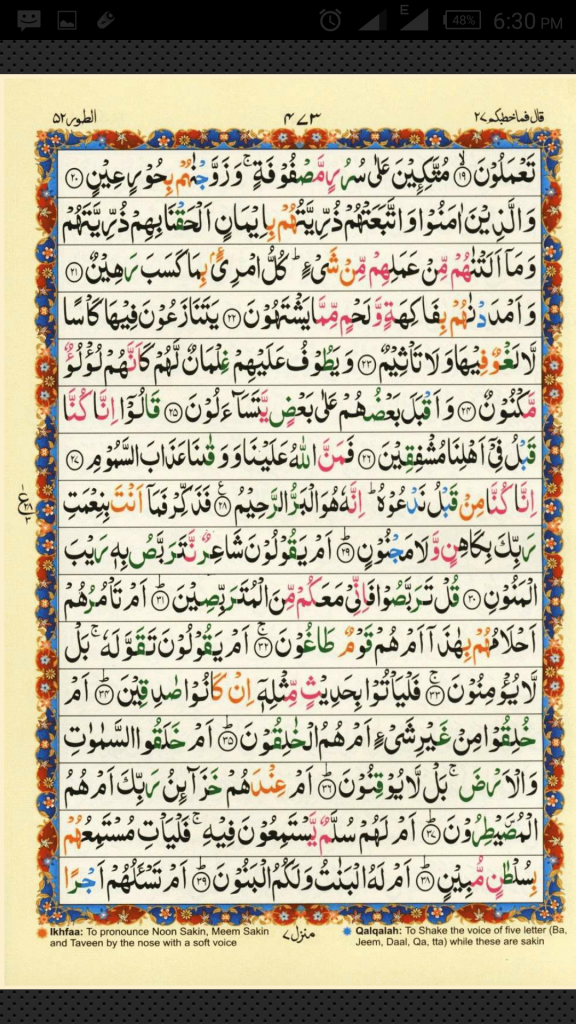 E 48% 6:30 PM
الطور ٥٢ ٤٧٣ قال فماخطبكم ٢٧
تَعْمَلُوْنَ ۙ‏﴿۱۹﴾ مُتَّكِـِٕيْنَ عَلٰى سُرُرٍ مَّصْفُوْفَةٍ ۚ وَزَوَّجْنٰهُمْ بِحُوْرٍ عِيْنٍ ﴿۲۰﴾
وَالَّذِيْنَ اٰمَنُوْا وَاتَّبَعَتْهُمْ ذُرِّيَّتُهُمْ بِاِيْمَانٍ اَلْحَقْنَا بِهِمْ ذُرِّيَّتَهُمْ
وَمَاۤ اَلَتْنٰهُمْ مِّنْ عَمَلِهِمْ مِّنْ شَىْءٍ ؕ كُلُّ امْرِئٍۢ بِمَا كَسَبَ رَهِيْنٌ ﴿۲۱﴾
وَاَمْدَدْنٰهُمْ بِفَاكِهَةٍ وَّلَحْمٍ مِّمَّا يَشْتَهُوْنَ ﴿۲۲﴾ يَتَنَازَعُوْنَ فِيْهَا كَاْسًا
لَّا لَغْوٌ فِيْهَا وَلَا تَاْثِيْمٌ ﴿۲۳﴾ وَيَطُوْفُ عَلَيْهِمْ غِلْمَانٌ لَّهُمْ كَاَنَّهُمْ لُؤْلُؤٌ
مَّكْنُوْنٌ ﴿۲۴﴾ وَاَقْبَلَ بَعْضُهُمْ عَلٰى بَعْضٍ يَّتَسَآءَلُوْنَ ﴿۲۵﴾ قَالُوْۤا اِنَّا كُنَّا
قَبْلُ فِىْۤ اَهْلِنَا مُشْفِقِيْنَ ﴿۲۶﴾ فَمَنَّ اللّٰهُ عَلَيْنَا وَوَقٰٮنَا عَذَابَ السَّمُوْمِ ﴿۲۷﴾
اِنَّا كُنَّا مِنْ قَبْلُ نَدْعُوْهُ ؕ اِنَّهٗ هُوَ الْبَرُّ الرَّحِيْمُ ﴿۲۸﴾ ع فَذَكِّرْ فَمَاۤ اَنْتَ بِنِعْمَتِ
رَبِّكَ بِكَاهِنٍ وَّلَا مَجْنُوْنٍ ﴿۲۹﴾ اَمْ يَقُوْلُوْنَ شَاعِرٌ نَّتَرَبَّصُ بِهٖ رَيْبَ
الْمَنُوْنِ ﴿۳۰﴾ قُلْ تَرَبَّصُوْا فَاِنِّىْ مَعَكُمْ مِّنَ الْمُتَرَبِّصِيْنَ ﴿۳۱﴾ اَمْ تَاْمُرُهُمْ
اَحْلَامُهُمْ بِهٰذَآ اَمْ هُمْ قَوْمٌ طَاغُوْنَ ۚ‏﴿۳۲﴾ اَمْ يَقُوْلُوْنَ تَقَوَّلَهٗ ۚ بَلْ
لَّا يُؤْمِنُوْنَ ۚ‏﴿۳۳﴾ فَلْيَاْتُوْا بِحَدِيْثٍ مِّثْلِهٖۤ اِنْ كَانُوْا صٰدِقِيْنَ ﴿۳۴﴾ اَمْ
خُلِقُوْا مِنْ غَيْرِ شَىْءٍ اَمْ هُمُ الْخٰلِقُوْنَ ﴿۳۵﴾ اَمْ خَلَقُوا السَّمٰوٰتِ
وَالْاَرْضَ ۚ بَلْ لَّا يُوْقِنُوْنَ ﴿۳۶﴾ اَمْ عِنْدَهُمْ خَزَآئِنُ رَبِّكَ اَمْ هُمُ
الْمُصَۜيْطِرُوْنَ ﴿۳۷﴾ اَمْ لَهُمْ سُلَّمٌ يَّسْتَمِعُوْنَ فِيْهِ ۚ فَلْيَاْتِ مُسْتَمِعُهُمْ
بِسُلْطٰنٍ مُّبِيْنٍ ﴿۳۸﴾ اَمْ لَهُ الْبَنٰتُ وَلَكُمُ الْبَنُوْنَ ﴿۳۹﴾ اَمْ تَسْـَٔلُهُمْ اَجْرًا
Ikhfaa: To pronounce Noon Sakin, Meem Sakin
and Taveen by the nose with a soft voice
منزل ٧
Qalqalah: To Shake the voice of five letter (Ba,
Jeem, Daal, Qa, tta) while these are sakin